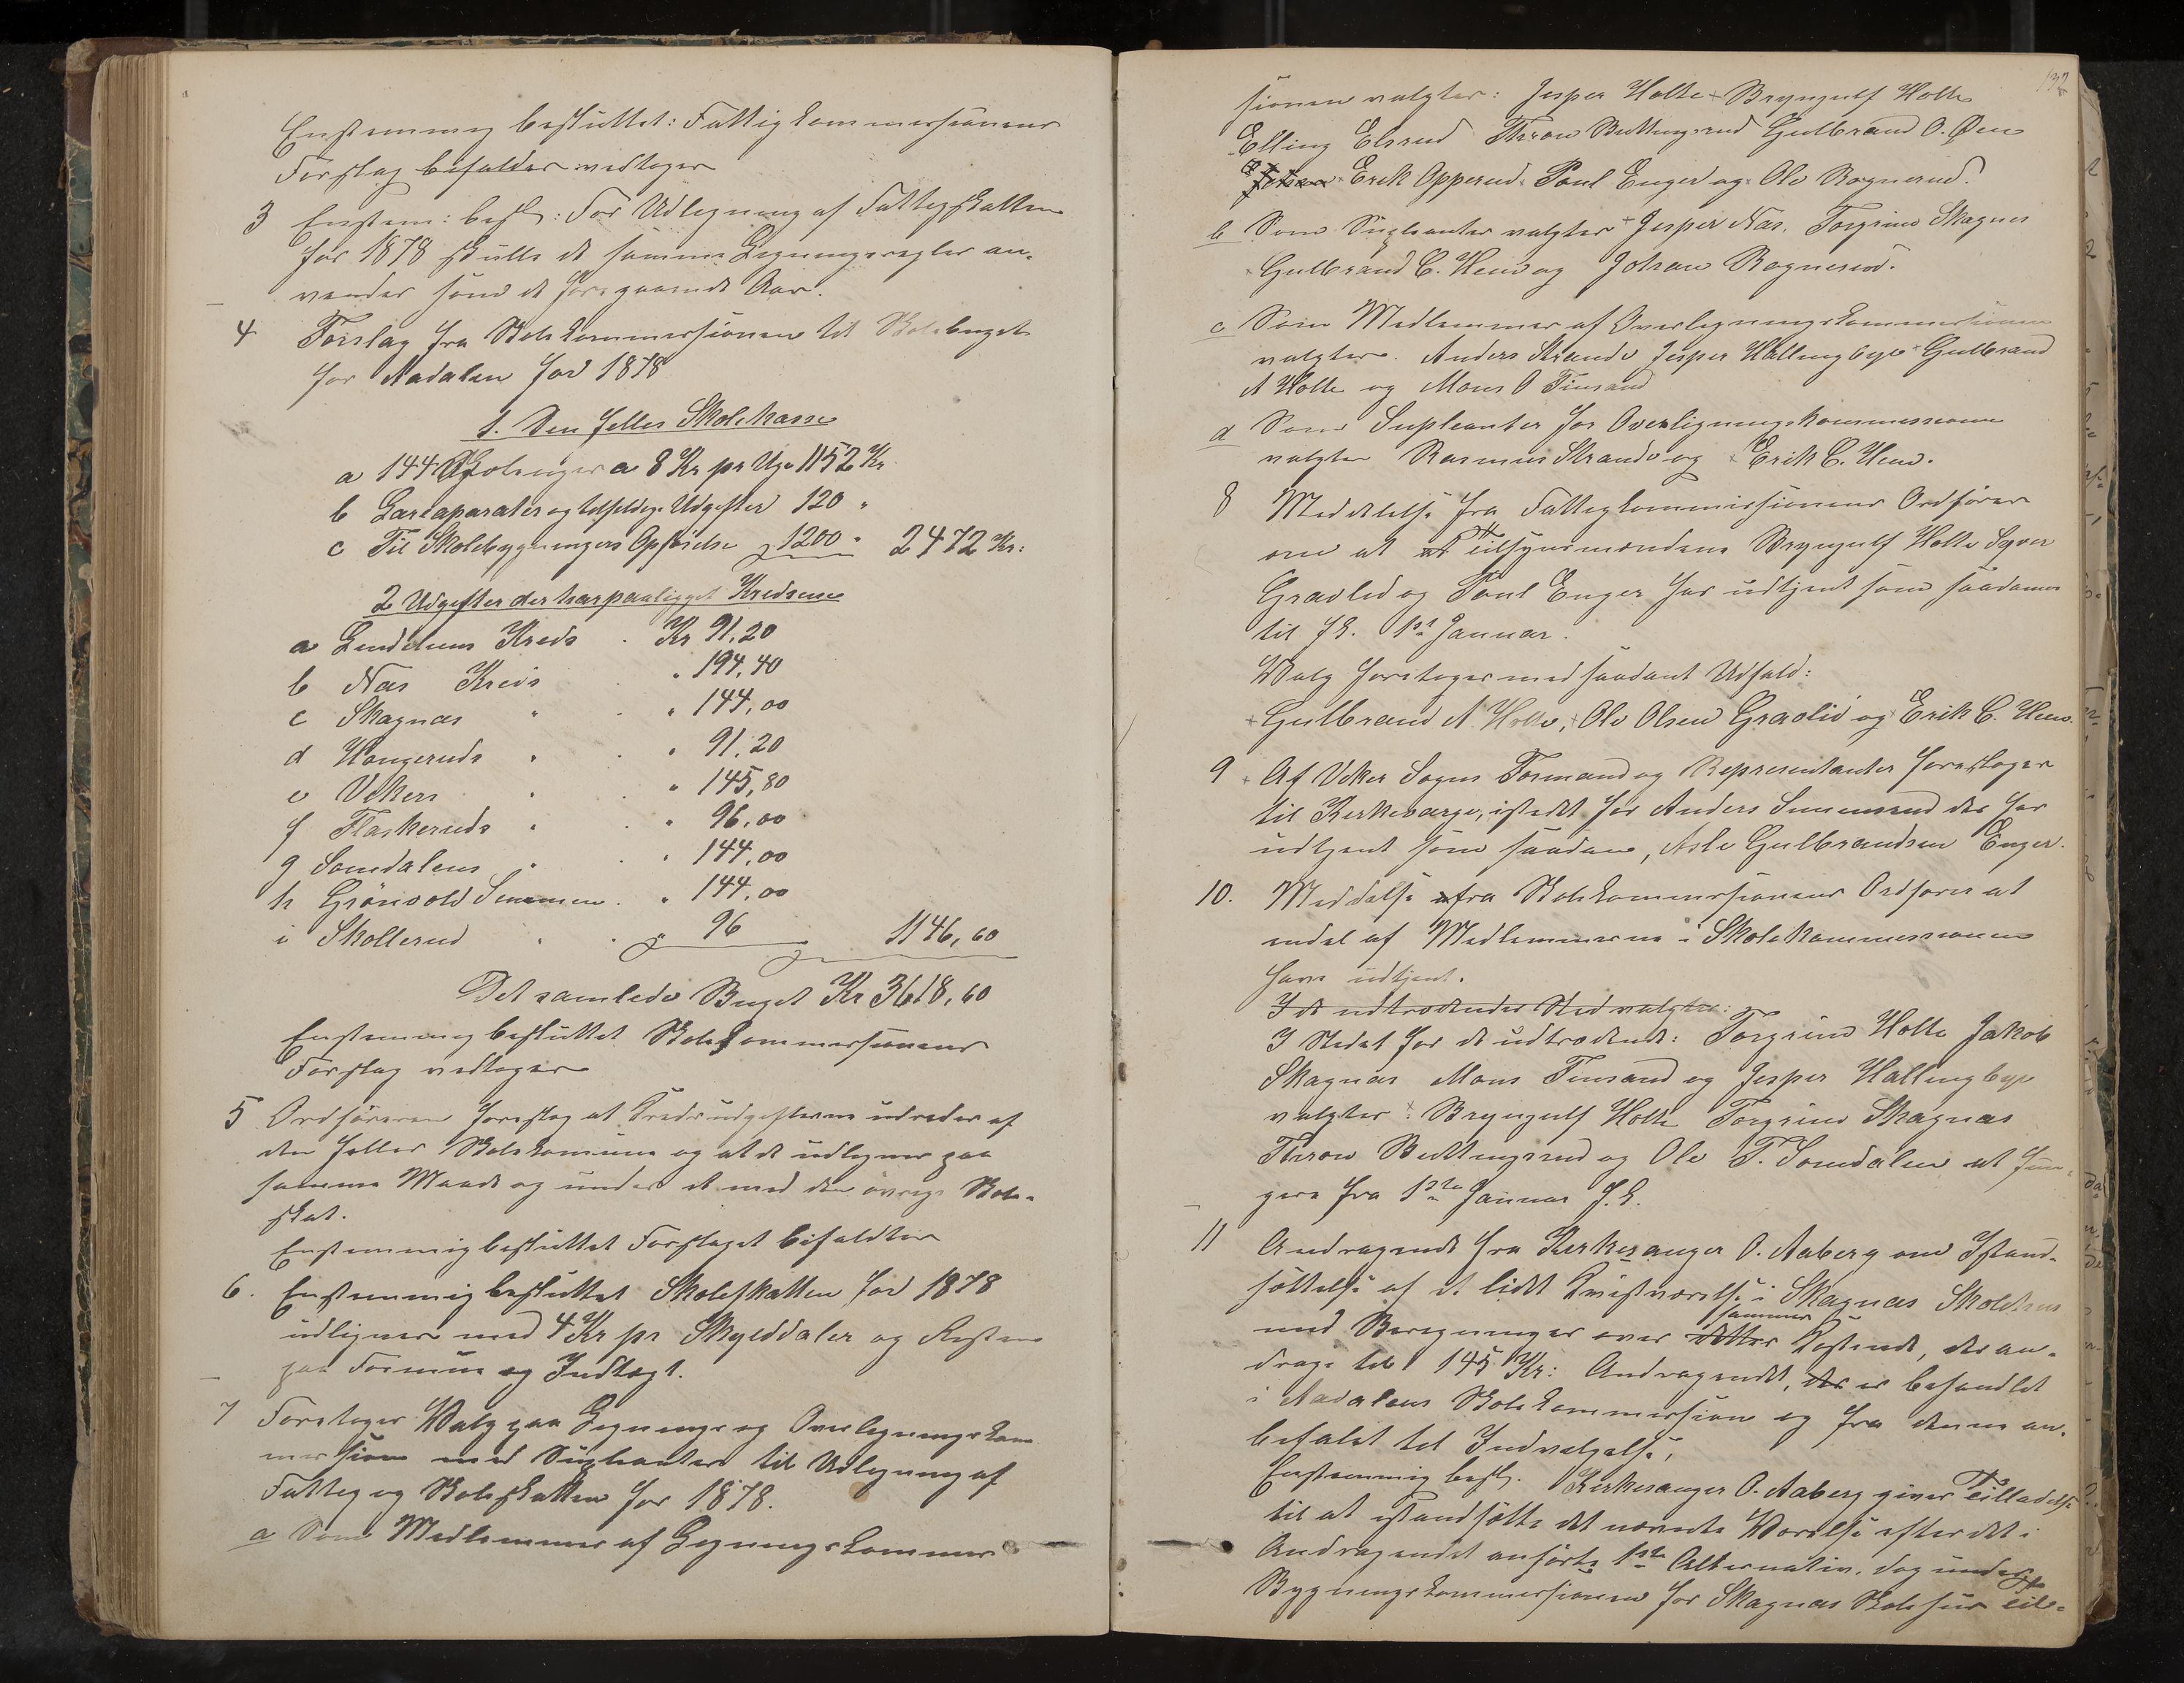 Enstemmig besluttet: Fattigkommissionens
Forslag bifaldes vedtoges
3 Enstem: besl: For Udligning af Fattigskatten
for 1878 skulle de samme Ligningsregler an-
vendes som det foregaaende Aar.
4 Forslag fra Skolekommissionen til Skolebuget
for Aadalen for 1878
1. Den felles Skolekasse
a 144 Ugolenger a 8 Kr pr Uge 1152 Kr
b Læreaparater og tilfeldige Udgifter 120 "
c Til Skolebygningers Opförelse " 1200 " 2472 Kr:
2 Udgifter der har paaligget Kredsene
a Lindeliens Kreds . Kr 91,20
b Næs Kreds . " 194,40
c Skagnæs " . " 144,00
d Hougeruds " . " 91,20
e Vekers " . " 145,80
f Flaskeruds " . " 96,00
g Somdalens " . " 144,00
h Grönvold Semmen . " 144,00
i Skollerud " . " 96 1146,60
Det samlede Buget Kr 3618,60
Enstemmig besluttet Skolekommissionens
Forslag vedtoges
5 Ordföreren foreslog at Kredsudgifterne udredes af
den felles Skolekomune og at de udlignes paa
samme Maade og under et med den övrige Skole-
skat.
Enstemmig besluttet Forslaget bifaldtes
6. Enstemmig besluttet Skoleskatten for 1878
udlignes med 4 Kr pr Skylddaler og Resten
paa Formue og Indtægt.
7 Foretoges Valg paa Lignings og Overlignings kom
mission med Supleanter til Udligning af
Fattig og Skoleskatten for 1878.
a Som Medlemmer af Ligningskommis
132
sionen valgtes: Jesper Holte Bryngulf Holte
Elling Elsrud Thron Buttingsrud Gulbrand O. Øen
Johan Erik Opperud Poul Enger og Ole Rognerud.
b Som Supleanter valgtes Jesper Næs, Torgrim Skagnes
Gulbrand C. Hen og Johan Rognerud.
c Som Medlemmer af Overligningskommissionen
valgtes. Anders Strande Jesper Hallingbye Gulbrand
A Holte og Mons O Finsand
d Som Supleanter for Overligningskommissionen
valgtes Rasmus Strande og Erik C. Hen.
8 Meddelelse fra Fattigkommissionens Ordförer
om at Tilsynsmændene Bryngulf Holte Syver
Gravlid og Poul Enger har udtjent som saadanne
til fk. 1ste Januar.
Valg foretoges med saadant Udfald:
Gulbrand A. Holte, Ole Olsen Gravlid og Erik C. Hen.
9 Af Veker Sogns Formænd og Representanter foresloges
til Kerkeværge, istedet for Anders Simensrud der har
udtjent som saadan, Asle Gulbrandsen Enger.
10. Meddelse fra Skolekommissionens Ordförer at
endel af Medlemmerne i Skolekommissionen
have udtjent.
I de udtrædendes Sted valgtes:
I Stedet for de udtrædende: Torgrim Holte Jakob
Skagnæs Mons Finsand og Jesper Hallingbye
valgtes: Bryngulf Holte Torgrim Skagnæs
Thron Buttingsrud og Ole T. Somdalen at fun-
gere fra 1ste Januar f.k.
11 Andragende fra Kerkesanger O. Aaberg om Istand-
sættelse af et lidet Kvistværelse i Skagnæs Skolehus
med Beregninger over dettes sammes Kostende, der an-
drage til 145 Kr: Andragendet, der er behandlet
i Aadalens Skolekommission og fra denne an-
befalet til Indvilgelse,
Enstemmig besl. Kerkesanger O. Aaberg gives Tilladelse
til at istandsætte det nævnte Værelse efter det i
Andragendet anförte 1ste Alternativ, dog under
Bygningskommissionen for Skagnæs Skolehus Til-